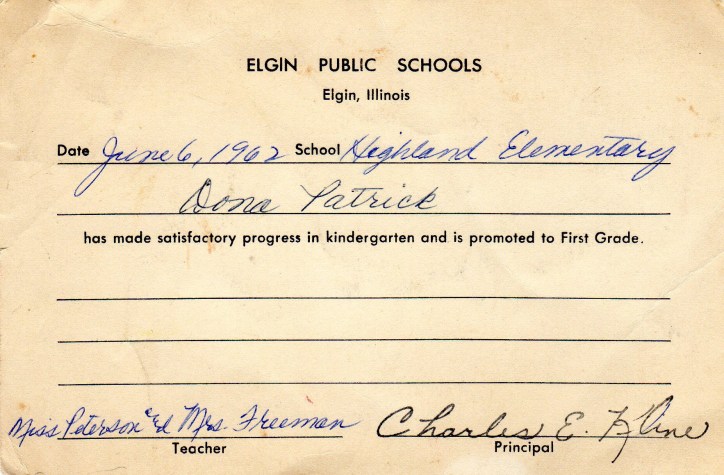 ELGIN PUBLIC SCHOOLS
Elgin, Illinois
Date June 6, 1962 School Highland Elementary
Dona Patrick
has made satisfactory progress in kindergarten and is promoted to First Grade.
Miss Peterson Mrs. Freeman Charles E. Kline
Teacher Principal